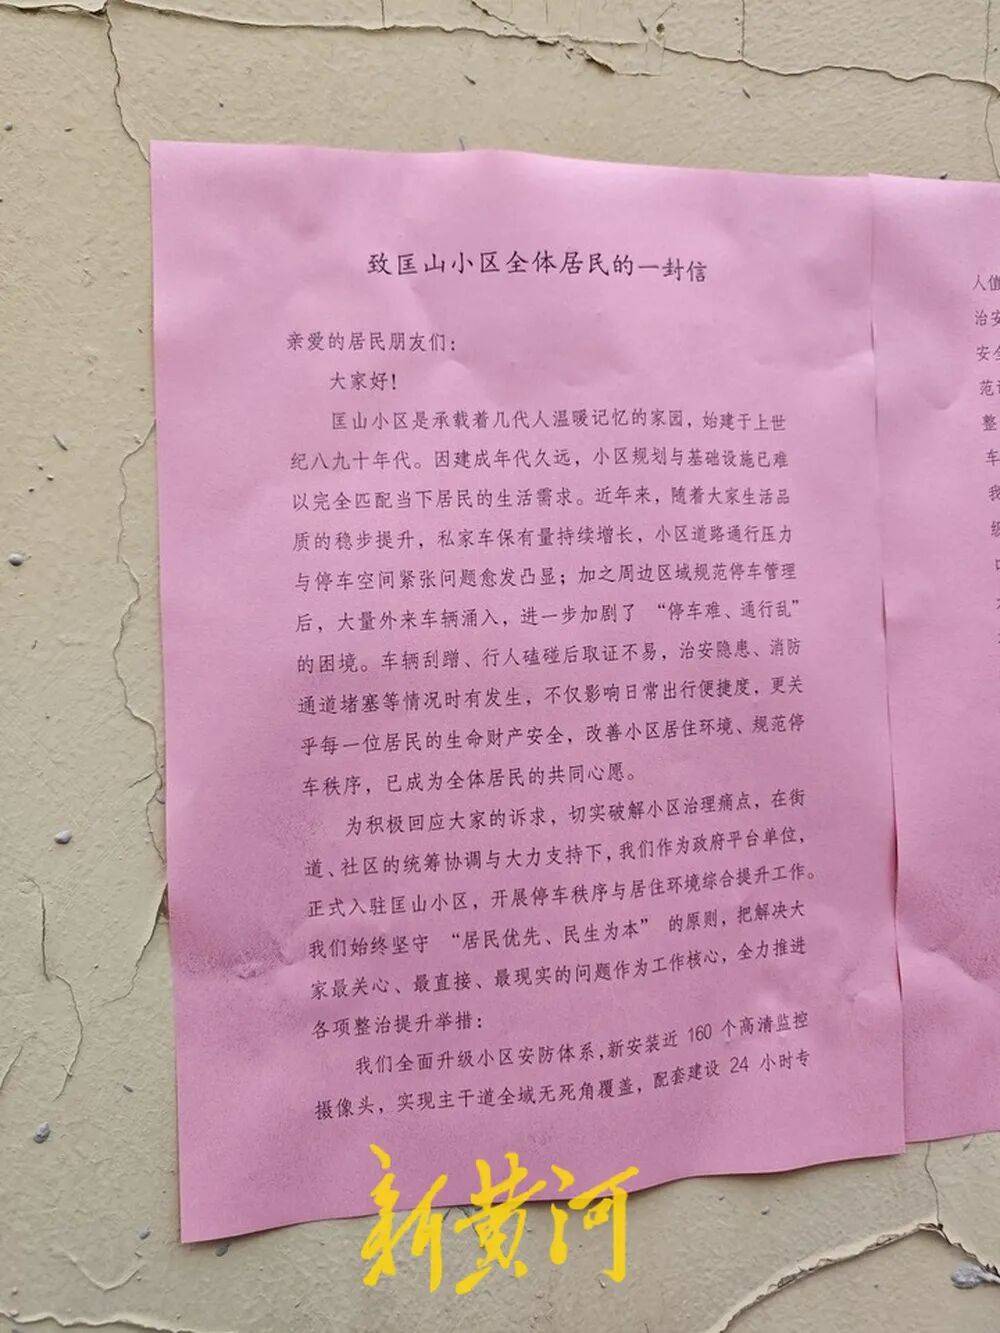 致匡山小区全体居民的一封信
亲爱的居民朋友们：
大家好！
匡山小区是承载着几代人温暖记忆的家园，始建于上世
纪八九十年代。因建成年代久远，小区规划与基础设施已难
以完全匹配当下居民的生活需求。近年来，随着大家生活品
质的稳步提升，私家车保有量持续增长，小区道路通行压力
与停车空间紧张问题愈发凸显；加之周边区域规范停车管理
后，大量外来车辆涌入，进一步加剧了“停车难、通行乱”
的困境。车辆刮蹭、行人磕碰后取证不易，治安隐患、消防
通道堵塞等情况时有发生，不仅影响日常出行便捷度，更关
乎每一位居民的生命财产安全，改善小区居住环境、规范停
车秩序，已成为全体居民的共同心愿。
为积极回应大家的诉求，切实破解小区治理痛点，在街
道、社区的统筹协调与大力支持下，我们作为政府平台单位，
正式入驻匡山小区，开展停车秩序与居住环境综合提升工作。
我们始终坚守“居民优先、民生为本”的原则，把解决大
家最关心、最直接、最现实的问题作为工作核心，全力推进
各项整治提升举措：
我们全面升级小区安防体系,新安装近 160 个高清监控
摄像头，实现主干道全域无死角覆盖，配套建设 24 小时专
人值
治安
安全
范
整
车
我
级
新黄河